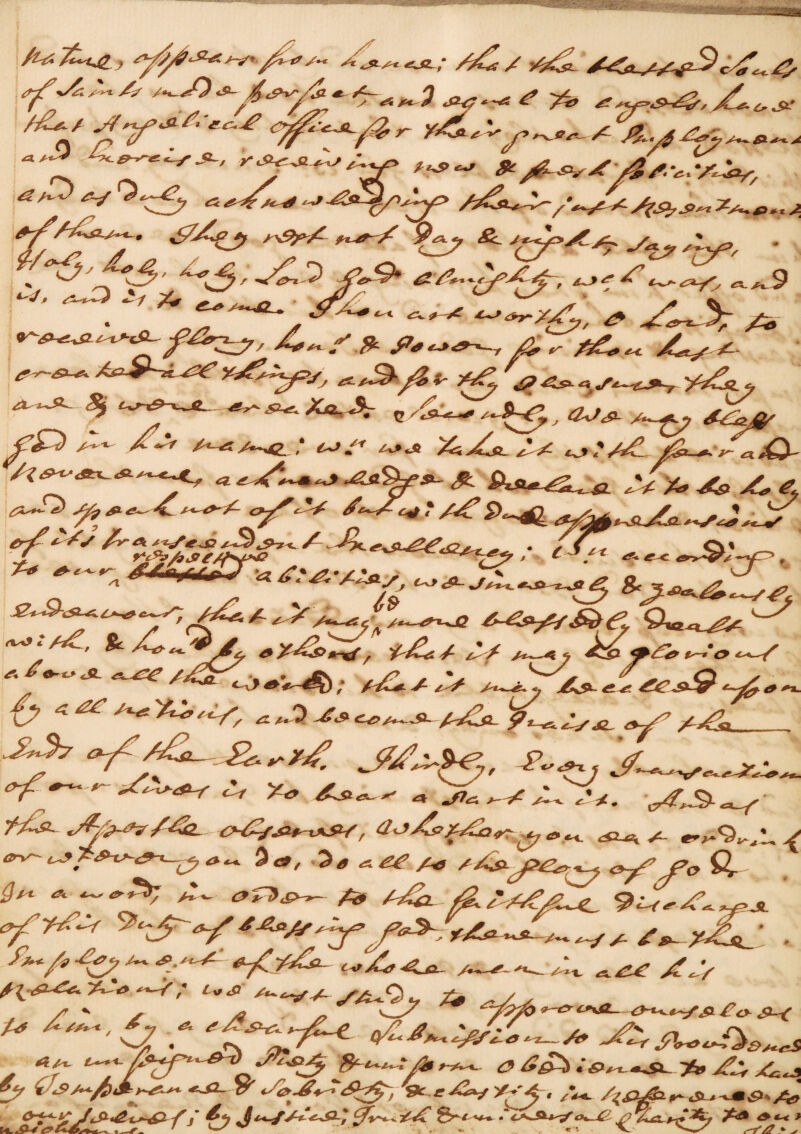 nature, appears from hence; that the blessed Souls
of Saints made perfect, and equal to angels, have
that Angelical office for their great Employment
and Exercise, receiving new & fresh felicities,
and as duly acknowledging their just Resentments
of them. They rest not Day & night, saying,
Holy, holy, holy, Lord God almighty, wch was, and
is, and is to come. Thou art worthy, O Lord, to
receive glory, honr. & Power, for thou hast
created all things, and for thy Pleasure, they
are & were created. Secondly, We may bless
God in his name; wn. we take it with fear and
Reverence, acknowledge & declare it to be holy
and speak not of it but with due apprehensions
of it's transcendent Excellency; wn according
respective
to our ^ blessed abilities, we sincerely & zealously
be
endeavour, that it may ^ more blessedly dealt
with, & hon'd by others, that it may be glorious
above all the world; that it may be called upon
by all nations, and become the Praise of the
Ends of the Earth. Thirdly, Every Transaction
of our Lives is to bear a Part in it. And as
the Apostle observes, Whether you eat or drink
or wtever you do, do all to the glory of God.
In a word, in order to the faithful Discharge
of this Duty of blessing God, there must be the
Employment of the whole man in all his
Relations; we must study to approve ourselves
to him, by a chearful Submission to his Providence
an unfeigned Piety & uniform Obedience to his Laws
by Temperance & Sobriety, & chastity, in Reference to
our selves; by Justice, Truth & universal Charity to our
neighbours. This